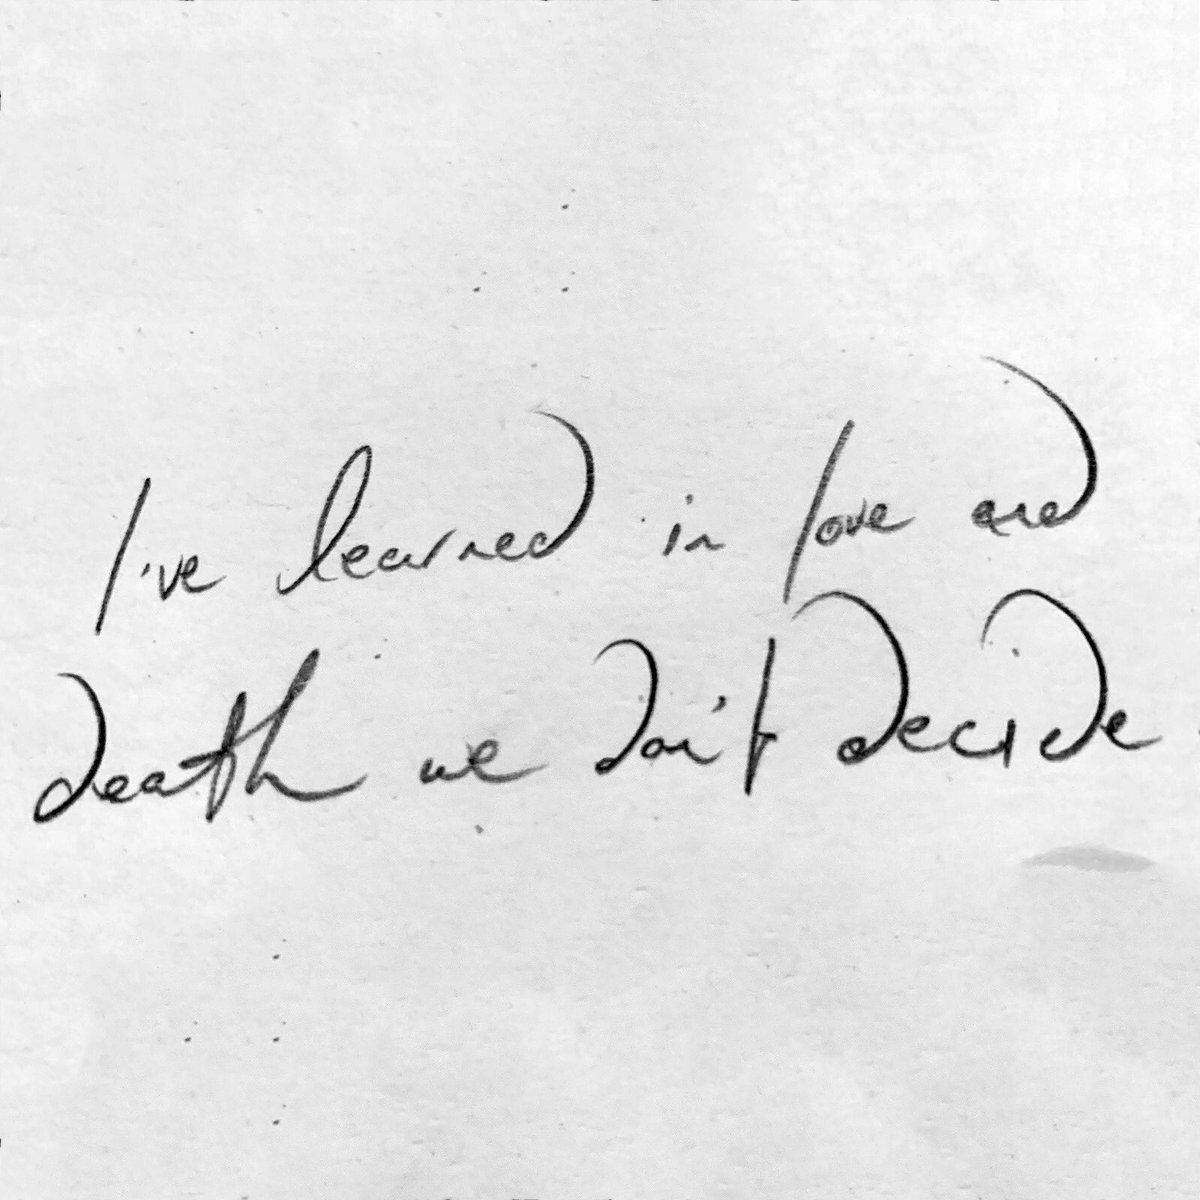 I've learned in love and
death we don't decide